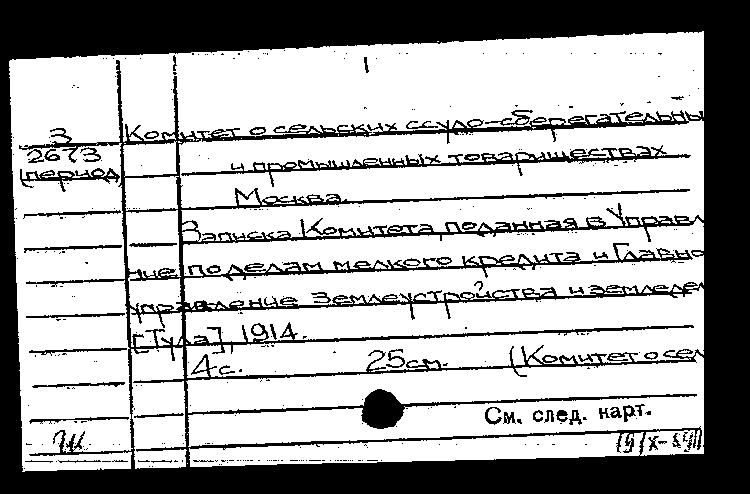 3
2673
(период)
Комитет о сельских ссудо-сберегательны
и промышленных товариществах
Москва.
Записка Комитета, поданная в Управл
ние по делам мелкого кредита и Главно
управление землеустройства и земледел
[Тула], 1914.
4 с. 25 см. (Комитет о сел
См. след. карт.